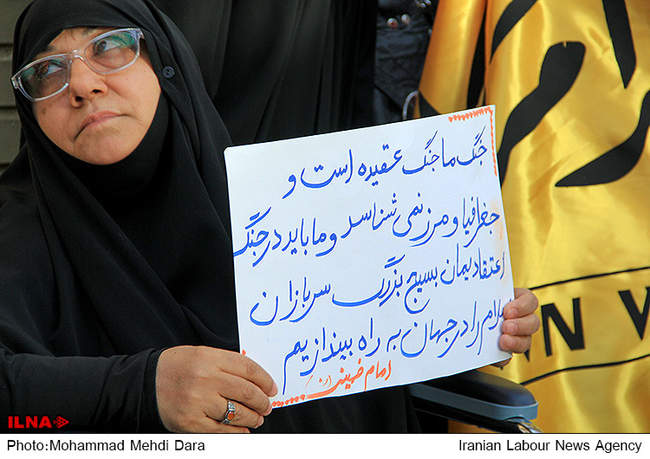 جنگ ما جنگ عقیده است و
جغرافیا و مرز نمی شناسد و ما باید در جنگ
اعتقادیمان بسیج بزرگ سربازان
اسلام را در جهان به راه بیندازیم
امام خمینی (ره)
N V
ILNA
Photo:Mohammad Mehdi Dara
Iranian Labour News Agency